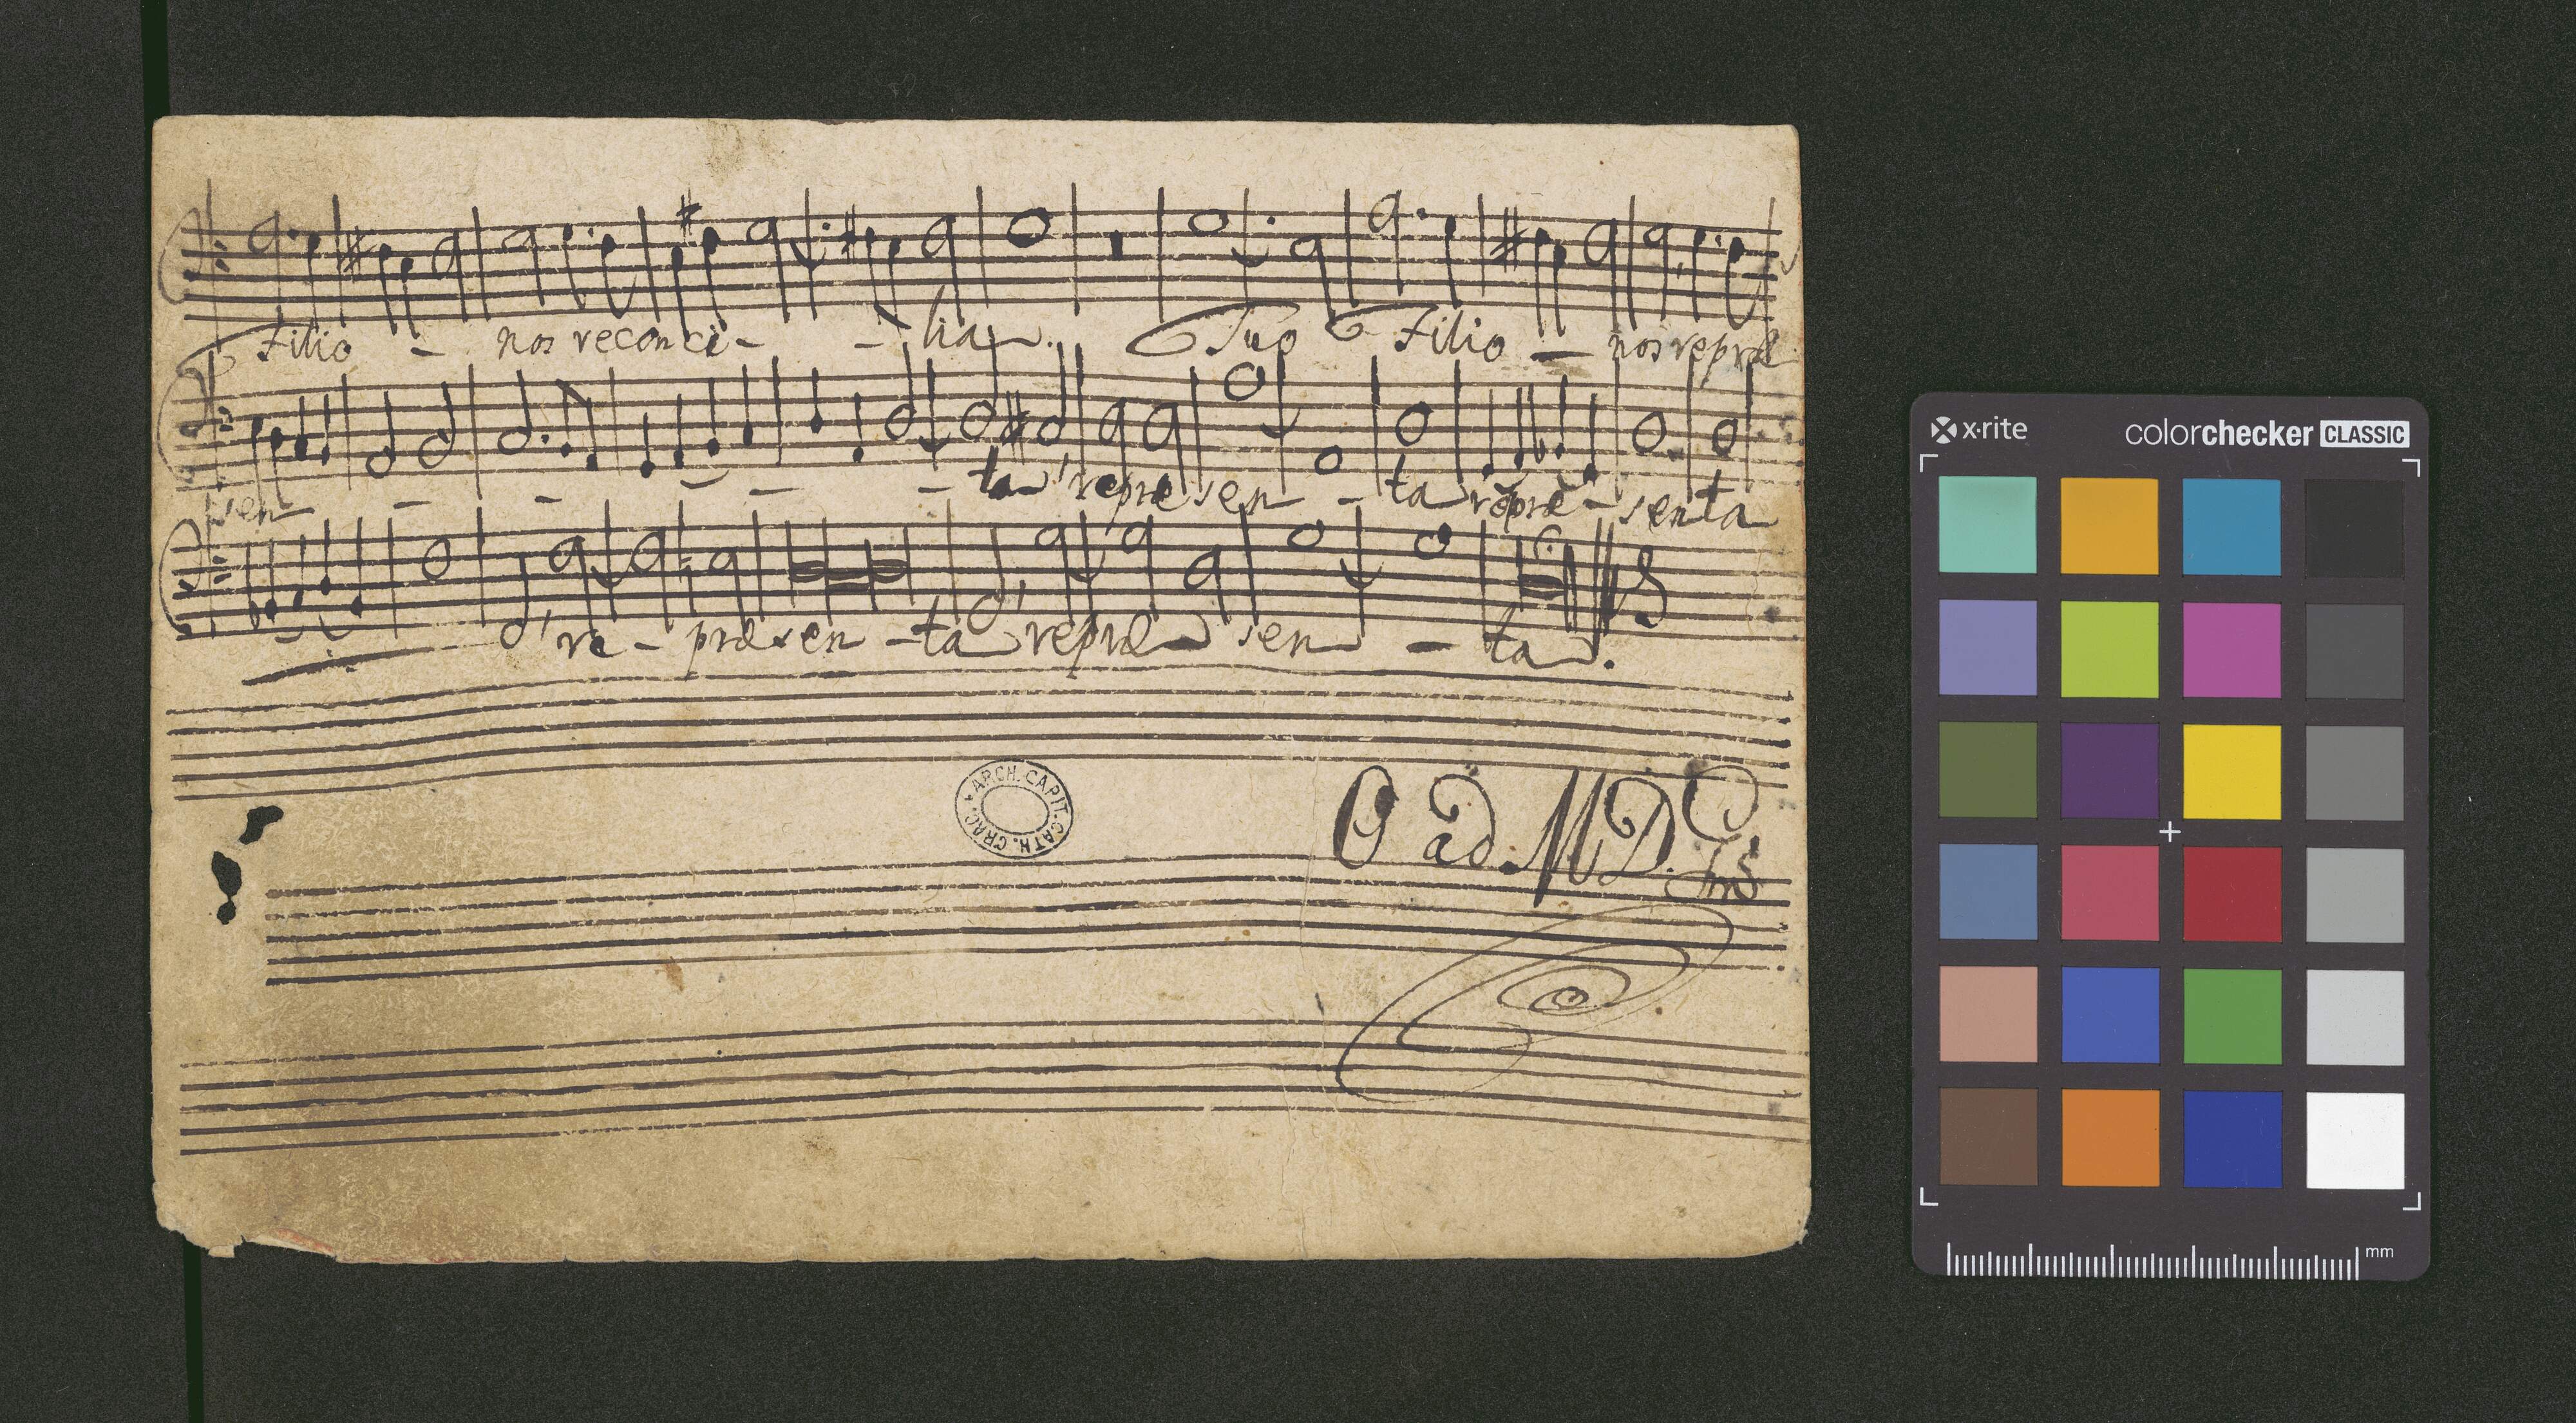 Filio - nos reconci - - lia. Tuo Filio - nos repræ
sen - - - - - ta repræsen - ta repræ - senta
re - præsen - ta repræ sen - ta.
ARCH. CAPIT. CATH. CRAC.
O ad MD
x·rite colorchecker CLASSIC
mm